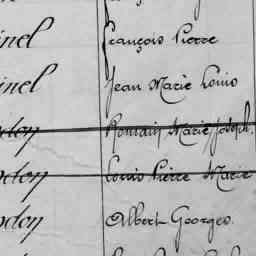 inel François Pierre
inel Jean Marie Louis
don Romain Marie Joseph.
don Louis Pierre Marie
don Albert Georges.